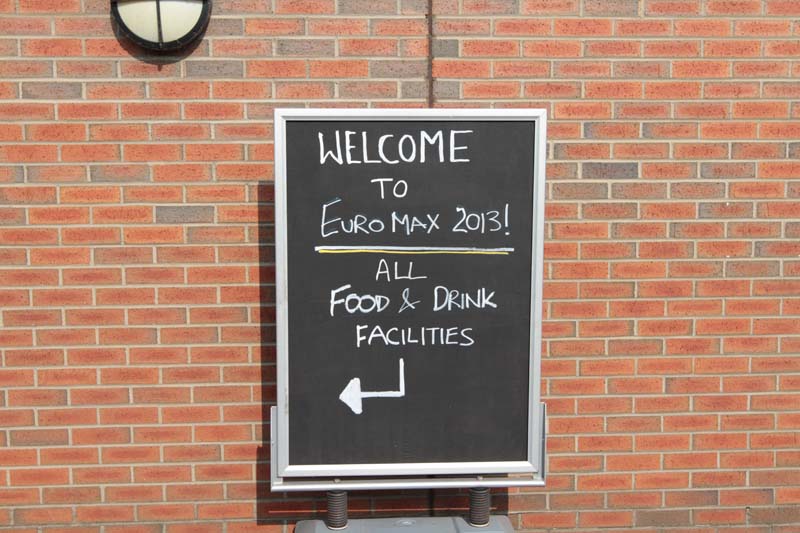 WELCOME
TO
EURO MAX 2013!
ALL
FOOD & DRINK
FACILITIES